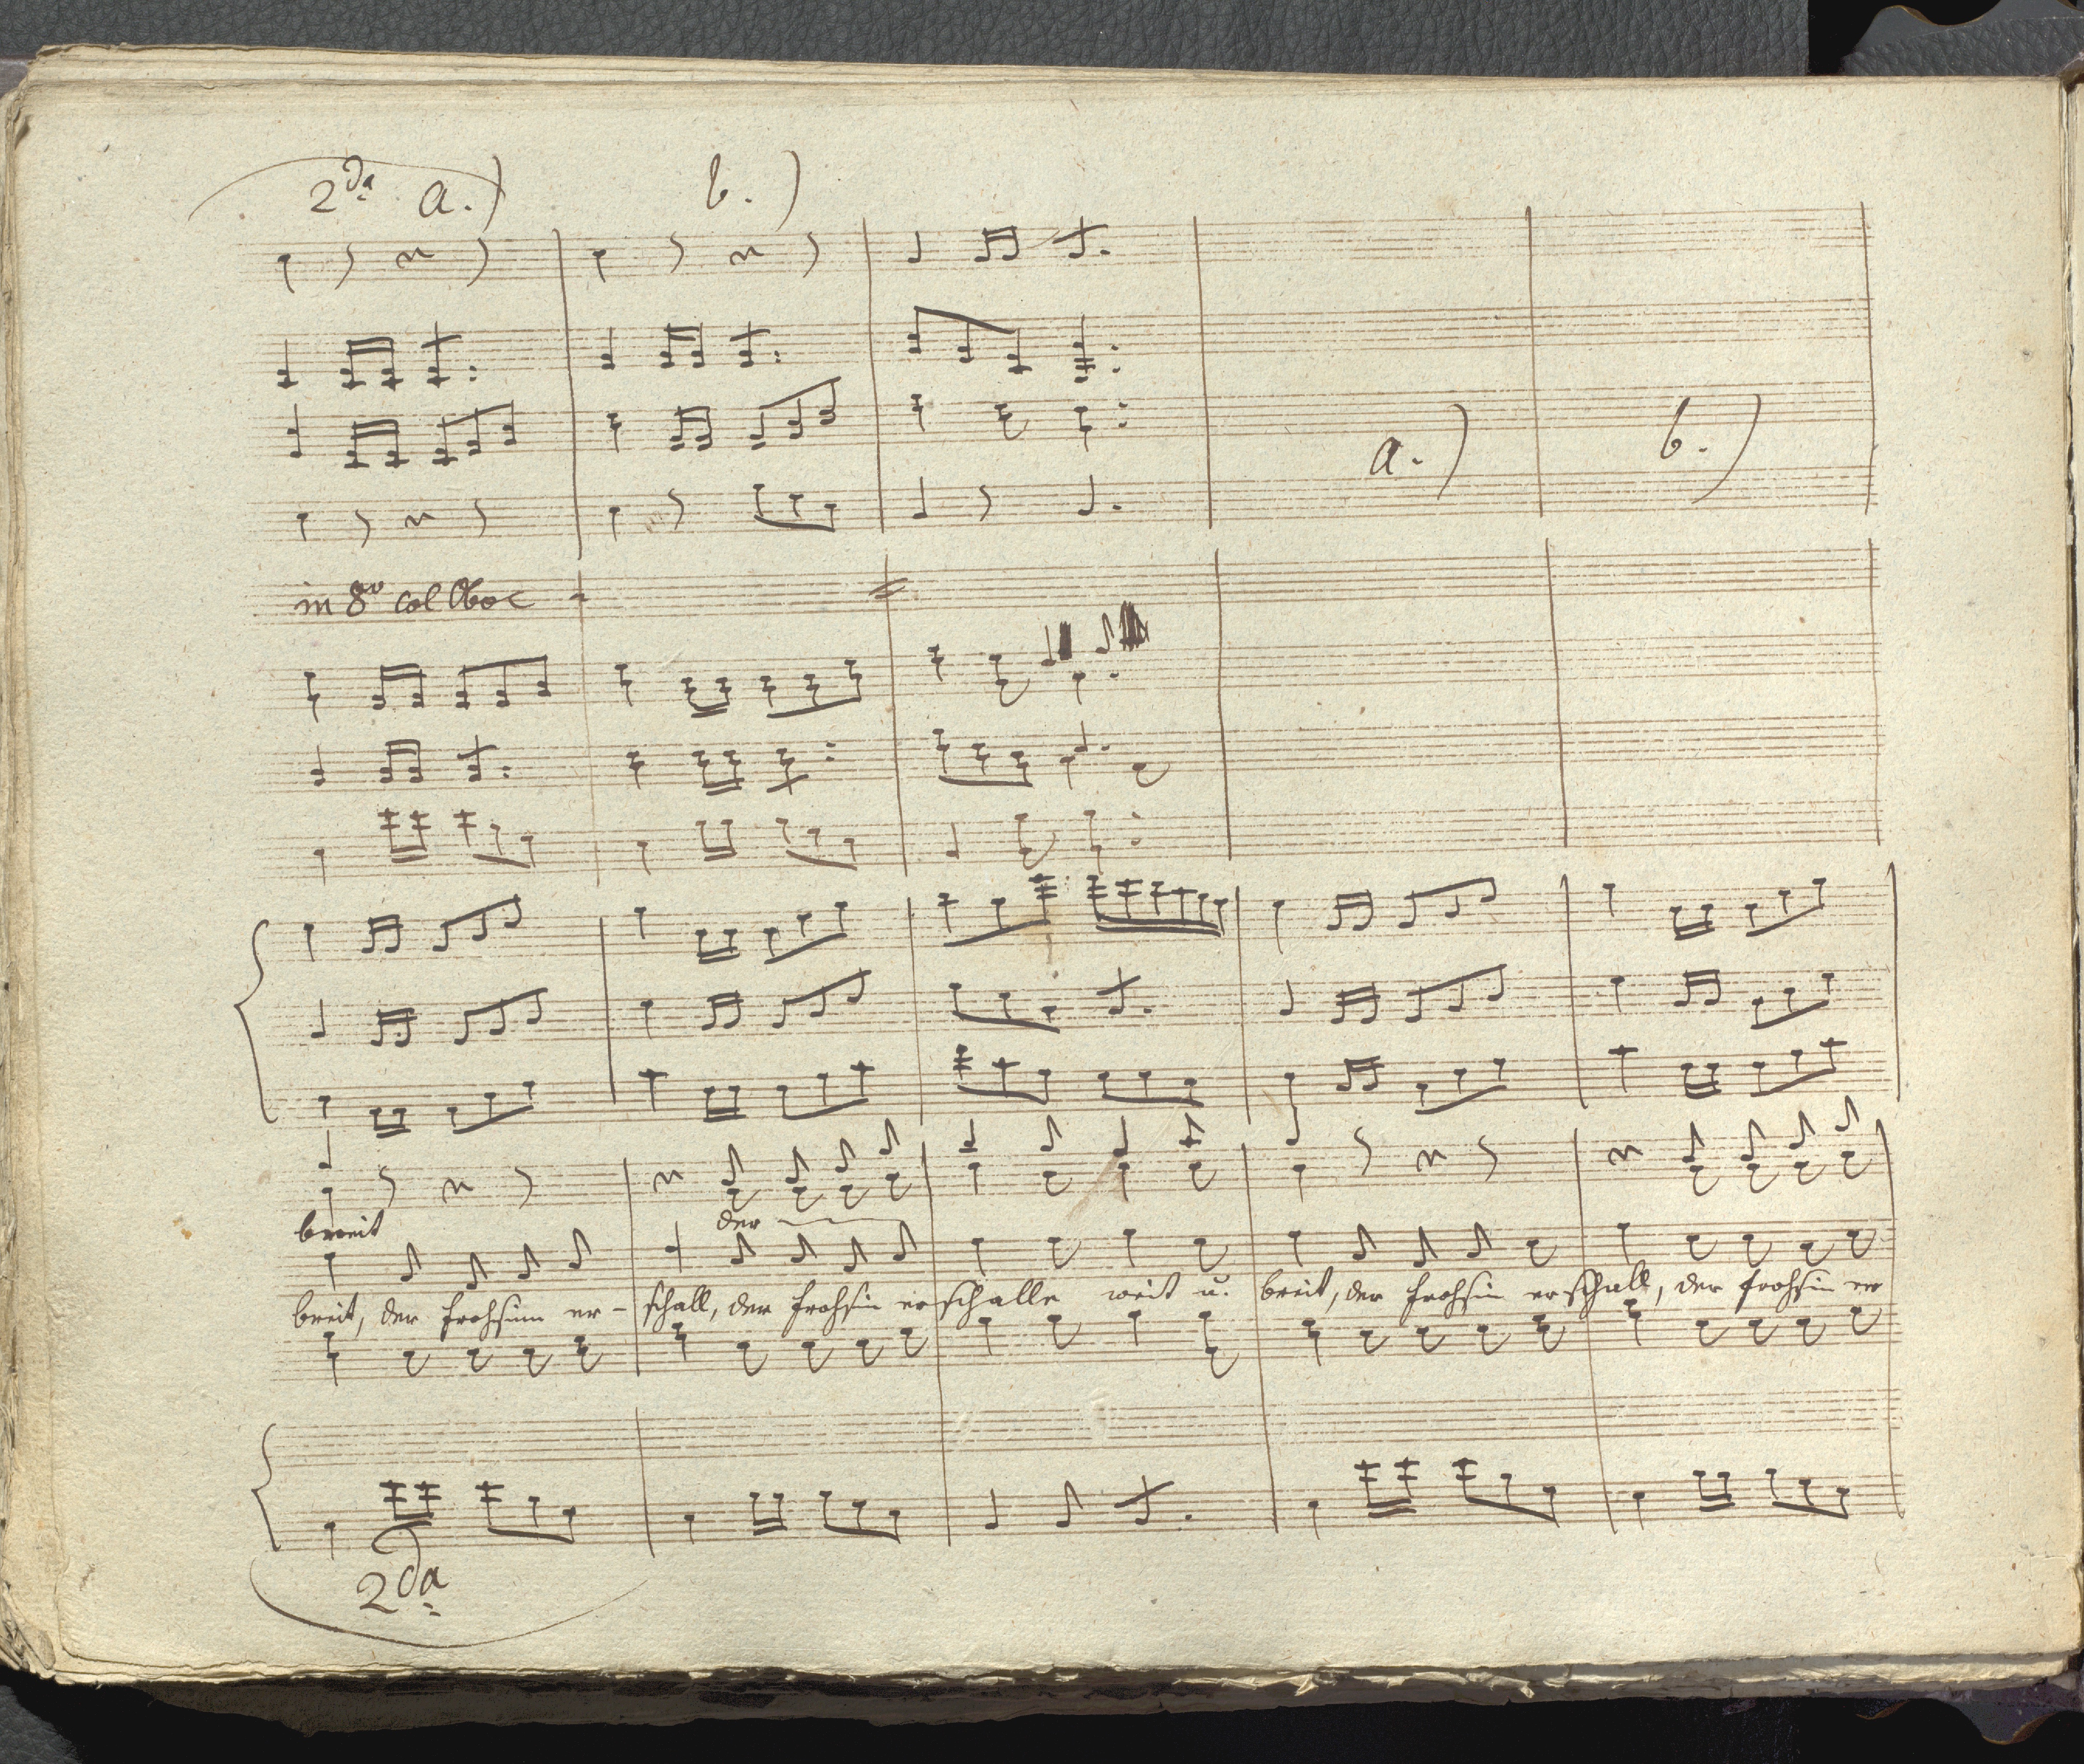 2da a.) b.)
a.) b.)
in 8vo col Oboe
breit der
breit, der Frohsinn er- schall, der Frohsin er schalle weit u. breit, der Frohsin er schall, der Frohsin er
2da